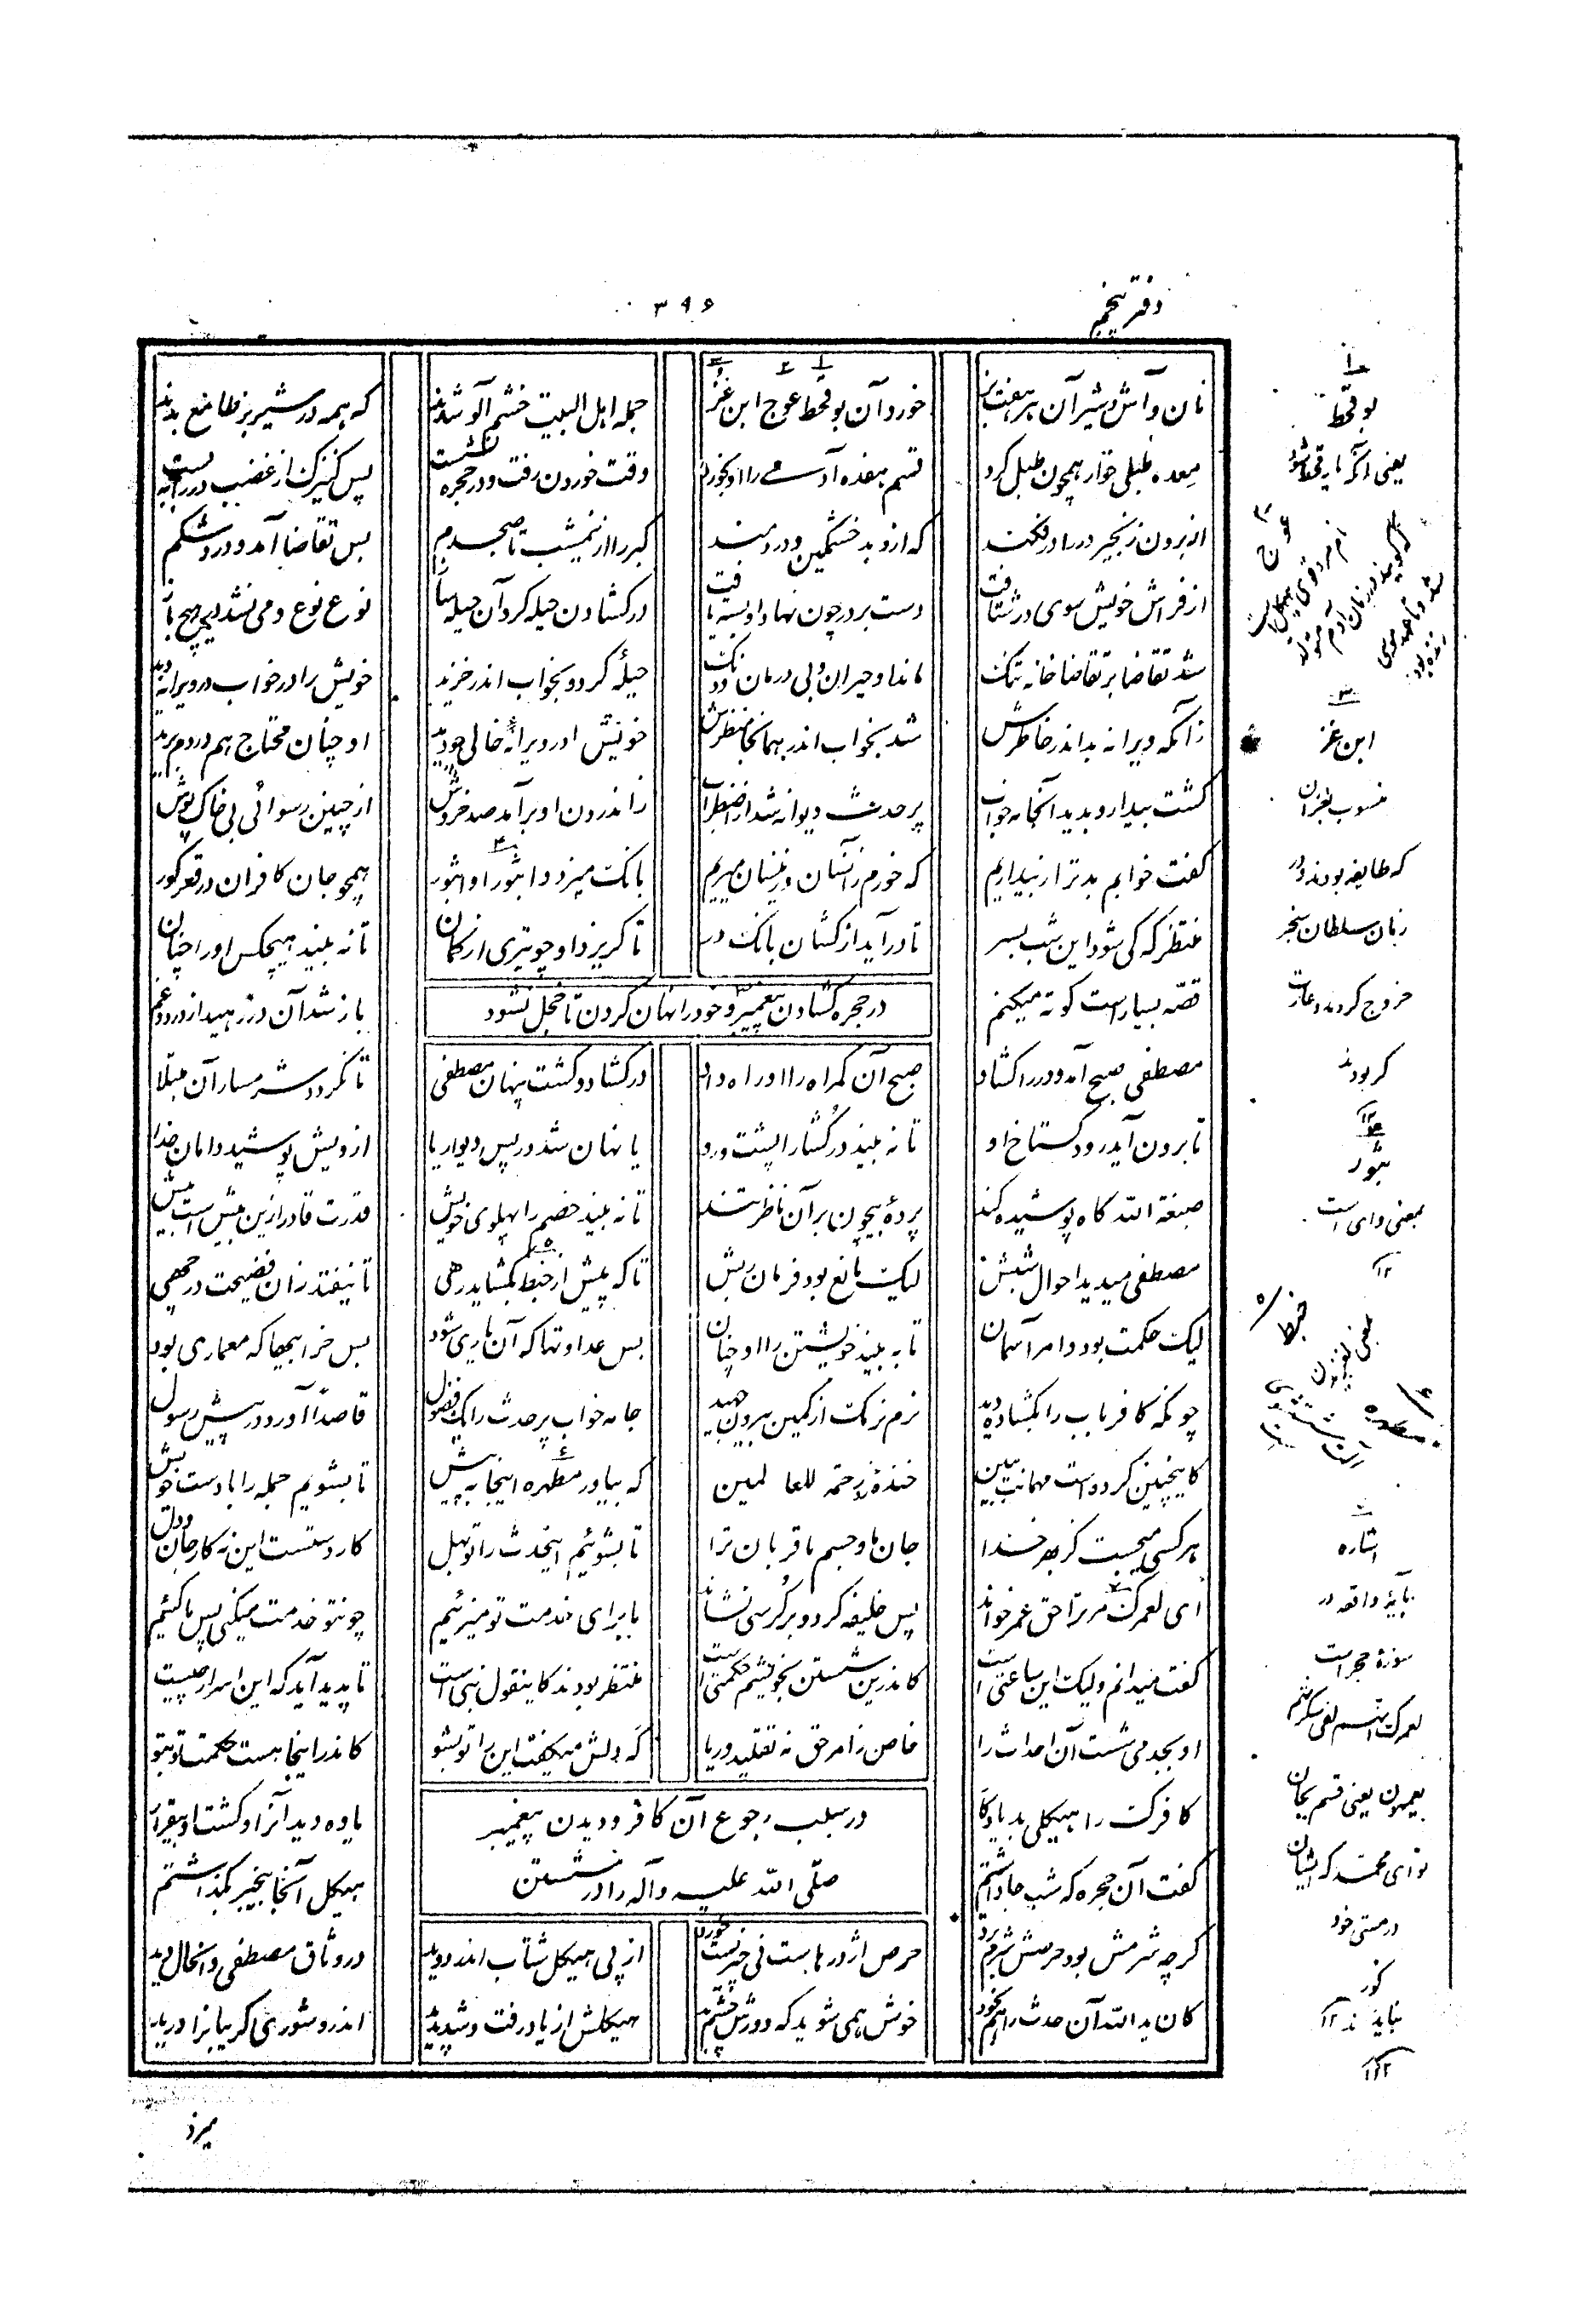 دفتر پنجم
۳۹۶
نان و آش و شیر آن هر هفت بز خورد آن بوقحط عوج ابن غز جمله اهل البیت خشم آلو شدند که همه در شیر بز طامع بدند
معده طبلی خوار همچون طبل کرد قسم هفده آدمی را او بخورد وقت خوردن رفت و در حجره نشست پس کنیزک از غضب در را ببست
از برون زنجیر در را درفکند که از و بد خشمگین و دردمند کبر را از نیمشب تا صبحدم بس تقاضا آمد و درد شکم
از فراش خویش سوی در شتافت دست بر در چون نهاد او بسته یافت در کشادن حیله کرد آن حیله ساز نوع نوع و می نشد هیچ باز
شد تقاضا بر تقاضا خانه تنگ ماند او حیران و بی درمان و دنگ حیلهٔ کرد و بخواب اندر خزید خویش را در خواب در ویرانه دید
زآنکه ویرانه بد اندر خاطرش شد بخواب اندر همانجا منظرش خویش در ویرانهٔ خالی چو دید او چنان محتاج هم در دم برید
کشت بیدار و بدید آنجامه خواب پر حدث دیوانه شد از اضطراب زاندرون او برآمد صد خروش از چنین رسوائی بی خاک پوش
کفت خوابم بدتر از بیداریم که خورم زآنسان و زینسان میریم بانک میزد وا ثبور او اثبور همچو جان کافران در قعر کور
منتظر که کی شود این شب بسر تا درآید از کشان بانک در تا کریزد او چو تیری از کمان تا نه بیند هیچکس او را چنان
قصه بسیار است کوته میکنم باز شد آن در رهید از درد و غم
در حجره کشادن پیغمبر و خود را نهان کردن تا خجل نشود
مصطفی صبح آمد و در را کشاد صبح آن کمراه را او راه داد در کشاد و کشت پنهان مصطفی تا نکردد شرمسار آن مبتلا
تا برون آید رود کستاخ او تا نه بیند در کشا را پشت و رو یا نهان شد در پس دیوار یا از ویش پوشید دامان خدا
صبغة الله کاه پوشیده کند پردهٔ بیچون بر آن ناظر تند تا نه بیند خصم را پهلوی خویش قدرت قادر ازین بیش است بیش
مصطفی میدید احوال شبش لیک مانع بود فرمان ربش تا که پیش از خبط بکشاید رهی تا نیفتد زان فضیحت در چهی
لیک حکمت بود و امر آسمان تا به بیند خویشتن را او چنان بس عداوتها که آن یاری شود بس خرابیها که معماری بود
چونکه کافر باب را بکشاده دید نرم نرمک از کمین بیرون جهید جامه خواب پر حدث را یک فضول قاصداً آورد در پیش رسول
کاینچنین کرده است مهمانت ببین خندهٔ زد رحمة للعالمین که بیاور مطهره اینجا به پیش تا بشویم جمله را با دست خویش
هر کسی میجست کز بهر خدا جان ما و جسم ما قربان ترا تا بشوئیم اینحدث را تو بهل کار دستست این نه کار جان و دل
ای لعمرک مر ترا حق عمر خواند پس خلیفه کرد و بر کرسی نشاند ما برای خدمت تو میزئیم چونتو خدمت میکنی پس ما کئیم
کفت میدانم ولیک این ساعتی است کاندرین شستن بخویشم حکمتی است منتظر بودند کاینقول نبی است تا پدید آید که این اسرار چیست
او بجد می شست آن احداث را خاص زامر حق نه تقلید و ریا که دلش میکفت این را تو بشو کاندر اینجا هست حکمت تو بتو
در سبب رجوع آن کافر و دیدن پیغمبر
صلّی الله علیه و آله را در شستن
کافرک را هیکلی بد یادکار یاوه دید آنرا و کشت او بیقرار
کفت آن حجره که شب جا داشتم هیکل آنجا بیخبر بکذاشتم
کرچه شرمش بود حرصش شرم برد حرص اژدرهاست نی چیزیست خورد از پی هیکل شتاب اندر دوید در وثاق مصطفی و آنحال دید
کان ید الله آن حدث را هم بخود خوش همی شوید که دورش چشم بد هیکلش از یاد رفت و شد پدید اندرو شوری کریبانرا درید
۱
بوقحط
یعنی
۲
عوج
نام مردی قوی هیکل است
که کویند در زمان آدم متولد
شد و تا عهد موسی
زنده بود
۳
ابن غز
منسوب بغزان
که طایفه بودند در
زمان سلطان سنجر
خروج کردند و غارت
کر بودند
۱۲
۴
ثبور
بمعنی وای است
۱۲
۵
خبط
۶
۷
اشاره
بآیهٔ واقعه در
سورهٔ حجر است
لعمرک انهم لفی سکرتهم
یعمهون یعنی قسم بجان
تو ای محمد که ایشان
در مستی خود
کور
۱۲
میزد